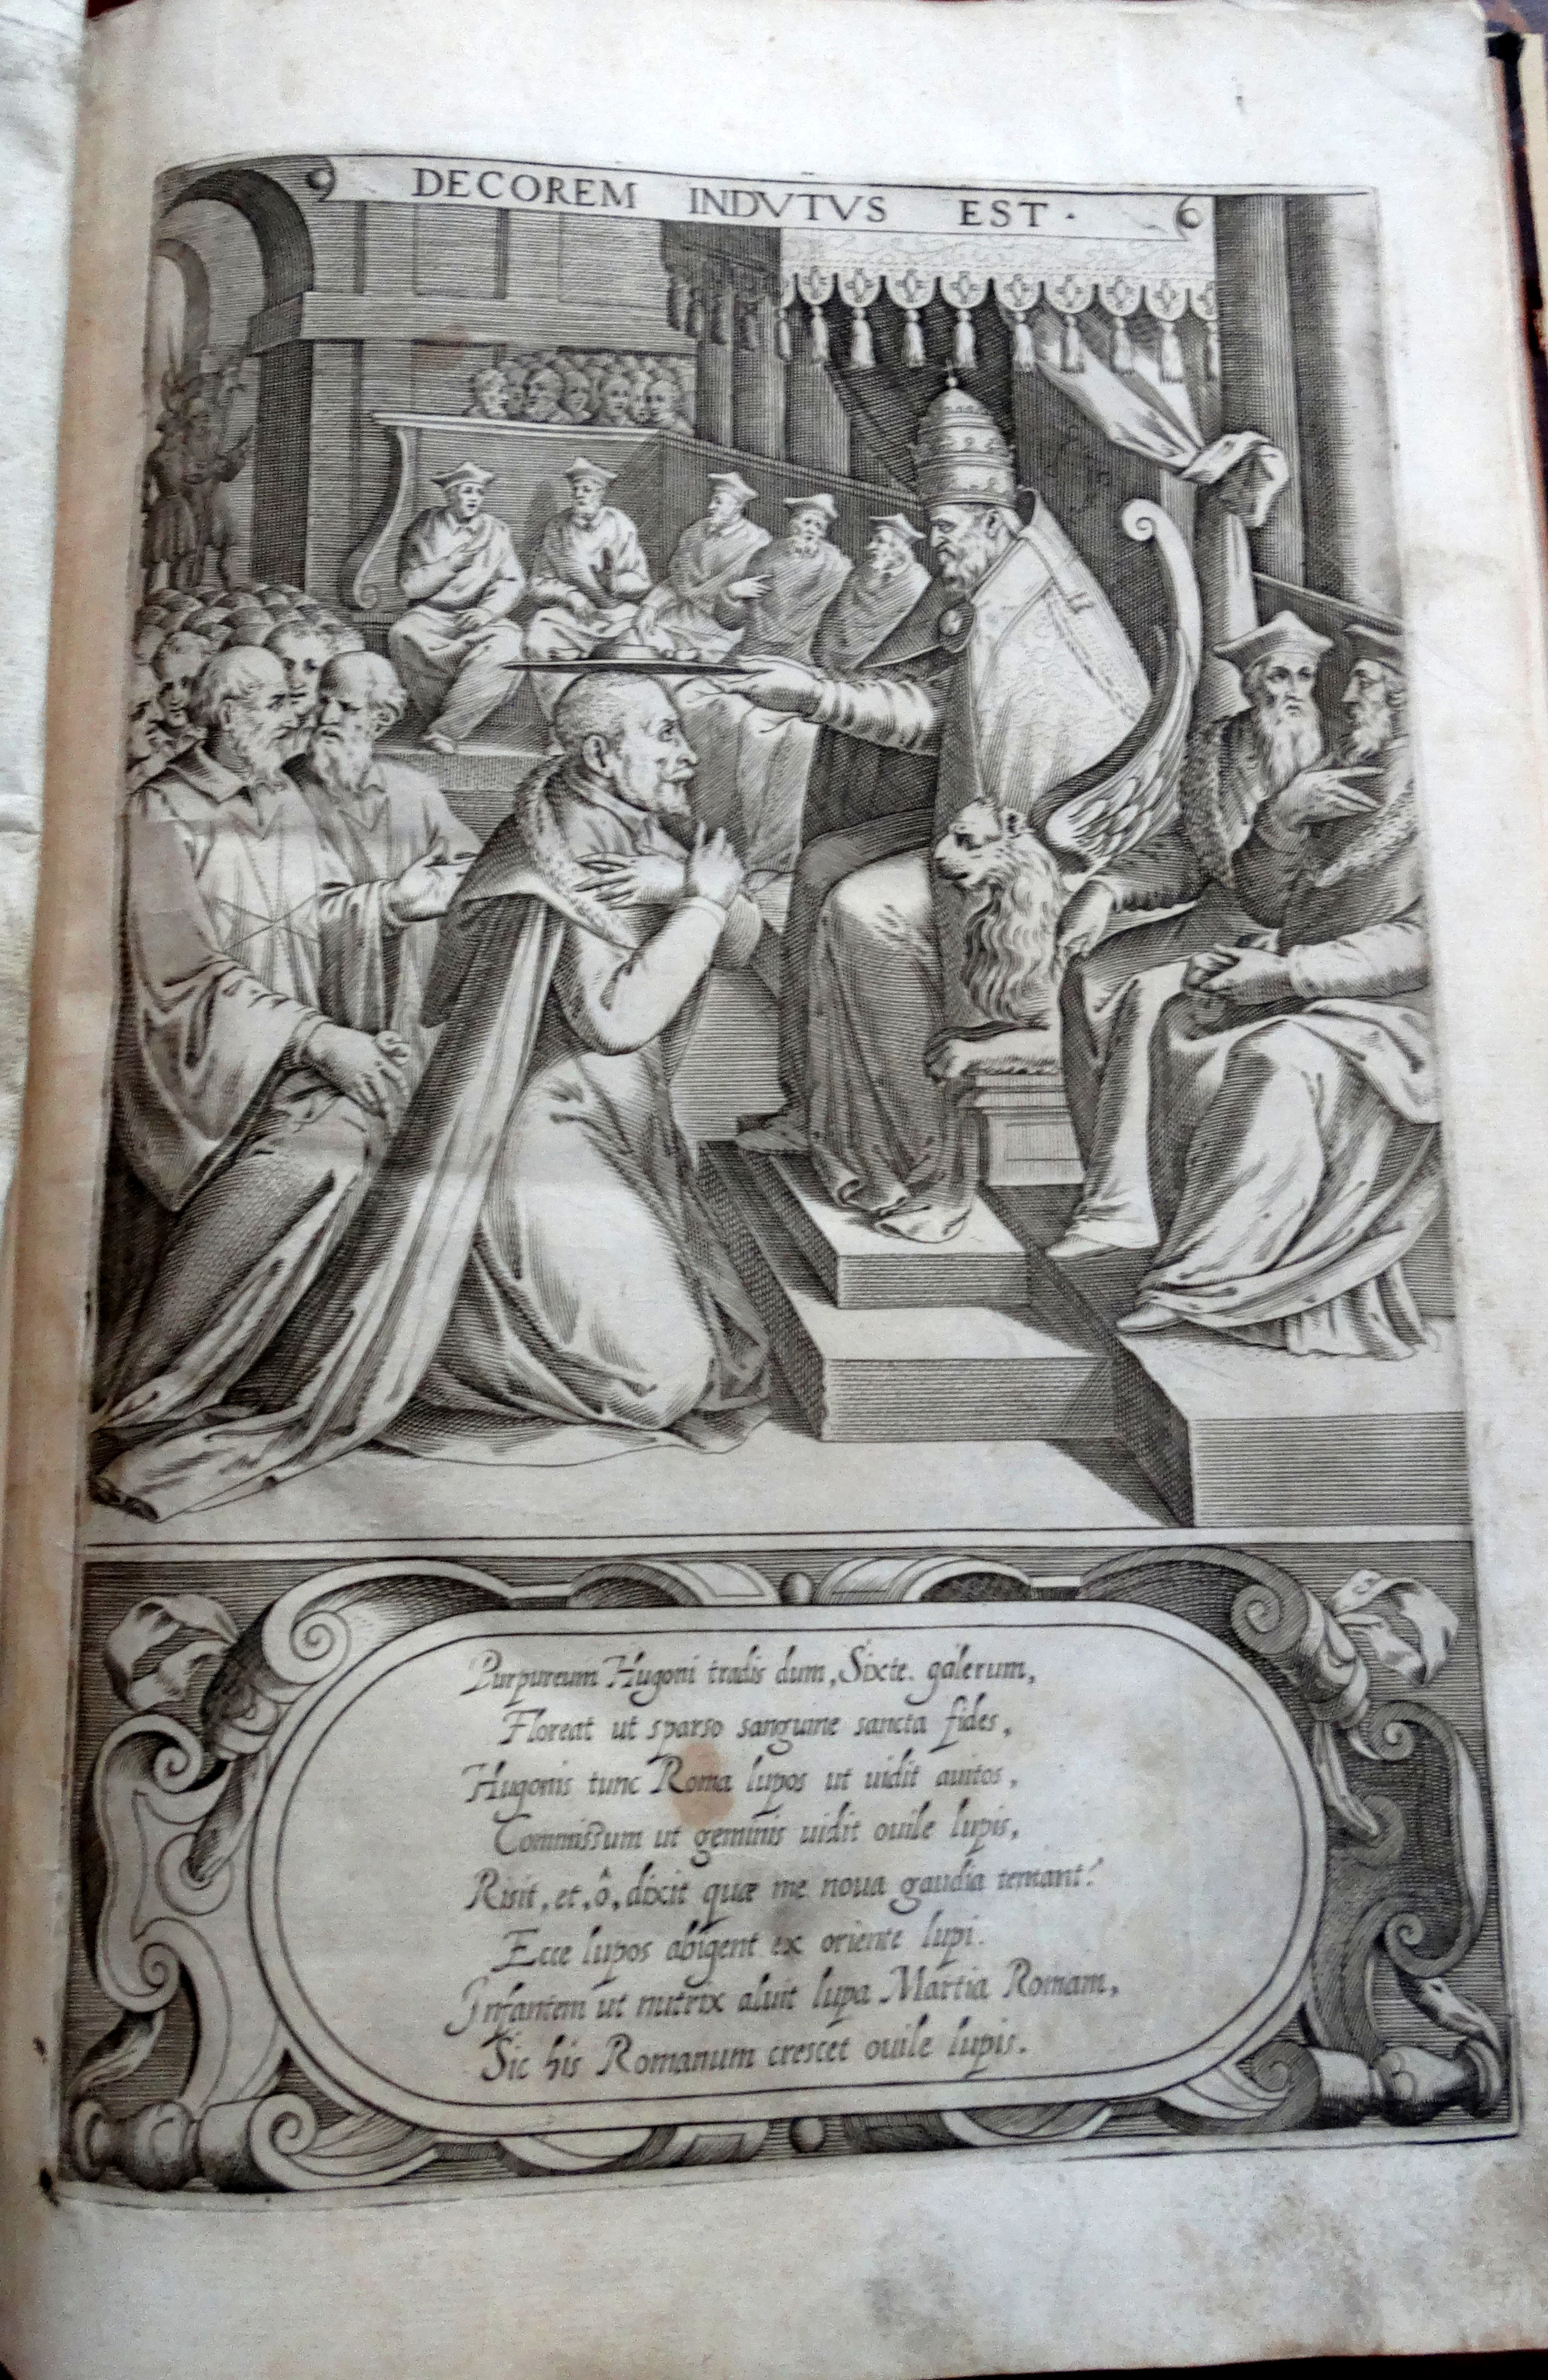 DECOREM INDVTVS EST.
Purpureum Hugoni tradis dum, Sixte. galerum,
Floreat ut sparso sanguine sancta fides,
Hugonis tunc Roma lupos ut uidit auitos,
Commissum ut geminis uidit ouile lupis,
Risit, et, ô, dixit quæ me noua gaudia tentant!
Ecce lupos abigent ex oriente lupi.
Infantem ut nutrix aluit lupa Martia Romam,
Sic his Romanum crescet ouile lupis.